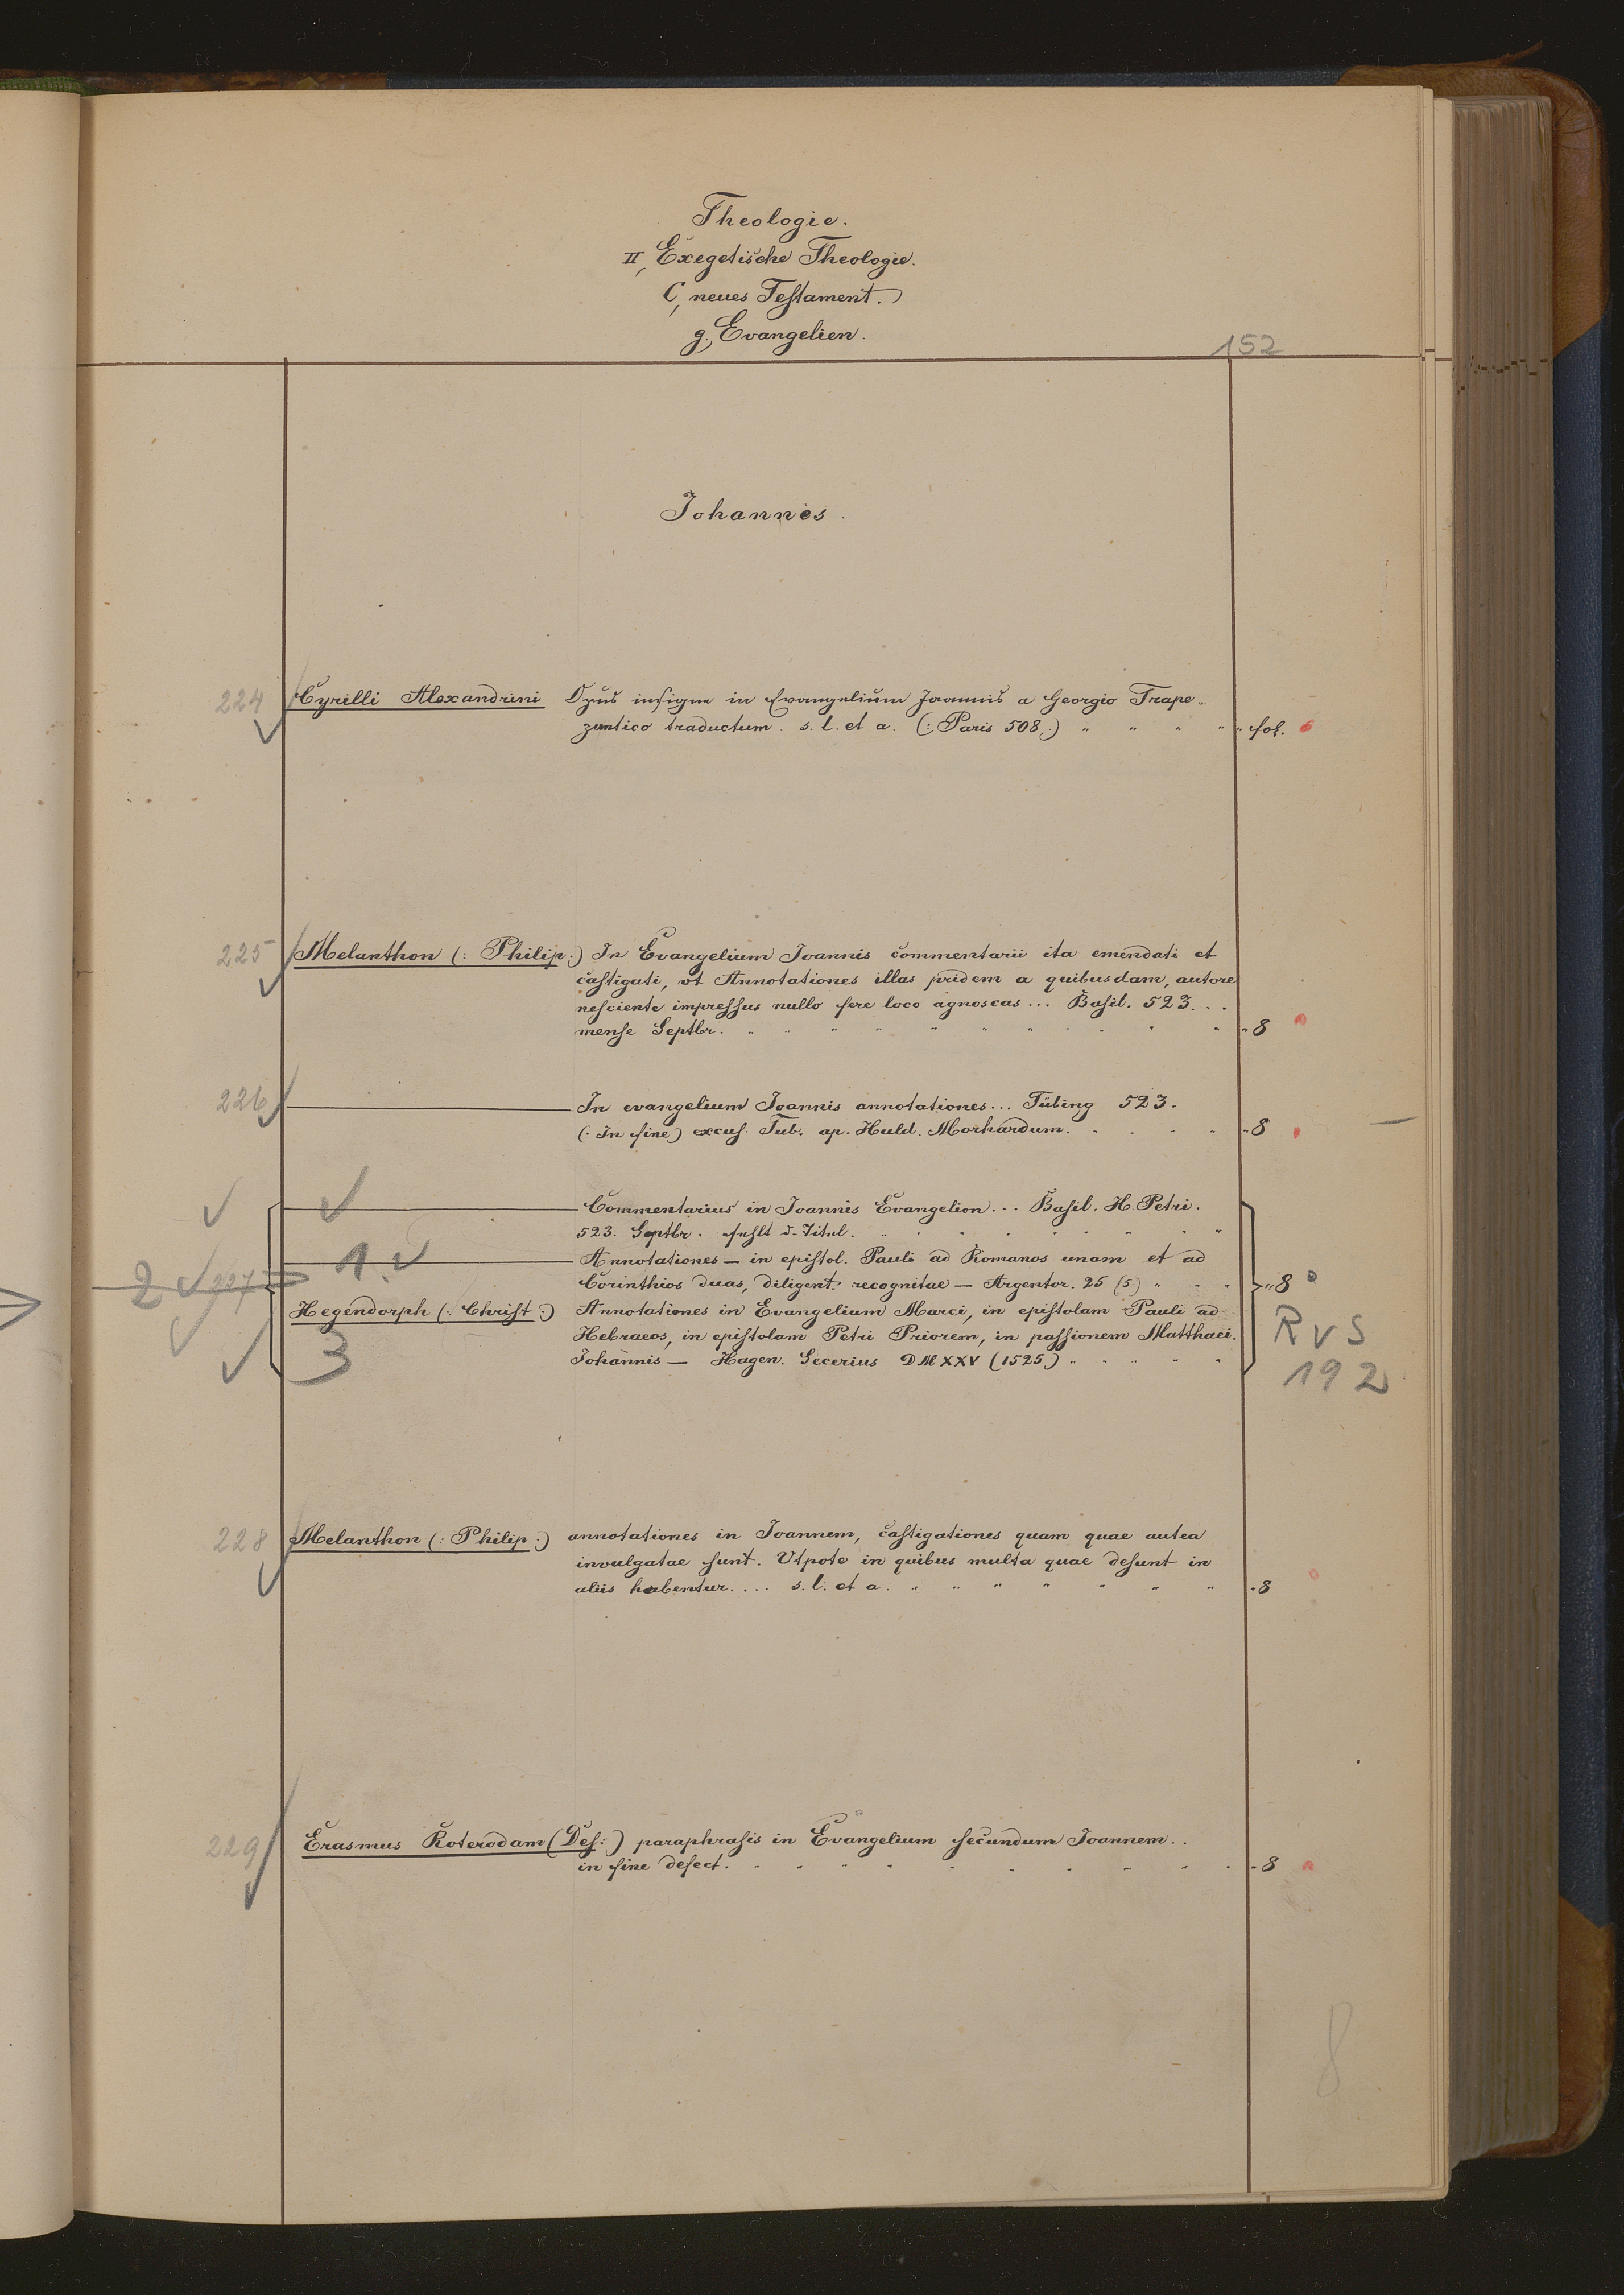 Theologie.
II, Exegetische Theologie.
C, neues Testament.
g., Evangelien.
152
Johannes.
224 Cyrilli Alexandrini Opus insigne in Evangelium Joannis a Georgio Trape-
zuntico traductum. s. l. et a. (: Paris 508 :) " " " " " fol.
225 Melanthon (: Philip :) In Evangelium Joannis commentarii ita emendati et
castigati, vt Annotationes illas pridem a quibusdam, autore
nesciente impressus nullo fere loco agnoscas ... Basil. 523. ..
mense Septbr. " " " " " " " " " " 8
226 ——— In evangelium Joannis annotationes ... Tübing 523.
(: In fine) excus. Tub. ap. Huld. Morhardum. " " " " 8
——— Commentarius in Joannis Evangelion ... Basil. H. Petri.
523. Septbr. fehlt d. Titul. " " " " " " " "
1. ——— Annotationes — in epistol. Pauli ad Romanos unam et ad
2 227 Corinthios duas, diligent. recognitae — Argentor. 25 (5) " " " " 8
Hegendorph (: Christ :) Annotationes in Evangelium Marci, in epistolam Pauli ad
Hebraeos, in epistolam Petri Priorem, in passionem Matthaei.
3 Johannis — Hagen. Secerius DMXXV (1525) " " " " "
R v S
192
228 Melanthon (: Philip :) annotationes in Joannem, castigationes quam quae antea
invulgatae sunt. Utpote in quibus multa quae desunt in
aliis habentur. ... s. l. et a. " " " " " " " 8
229 Erasmus Roterodam (Des :) paraphrasis in Evangelium secundum Joannem ..
in fine defect. " " " " " " " " " " 8
8